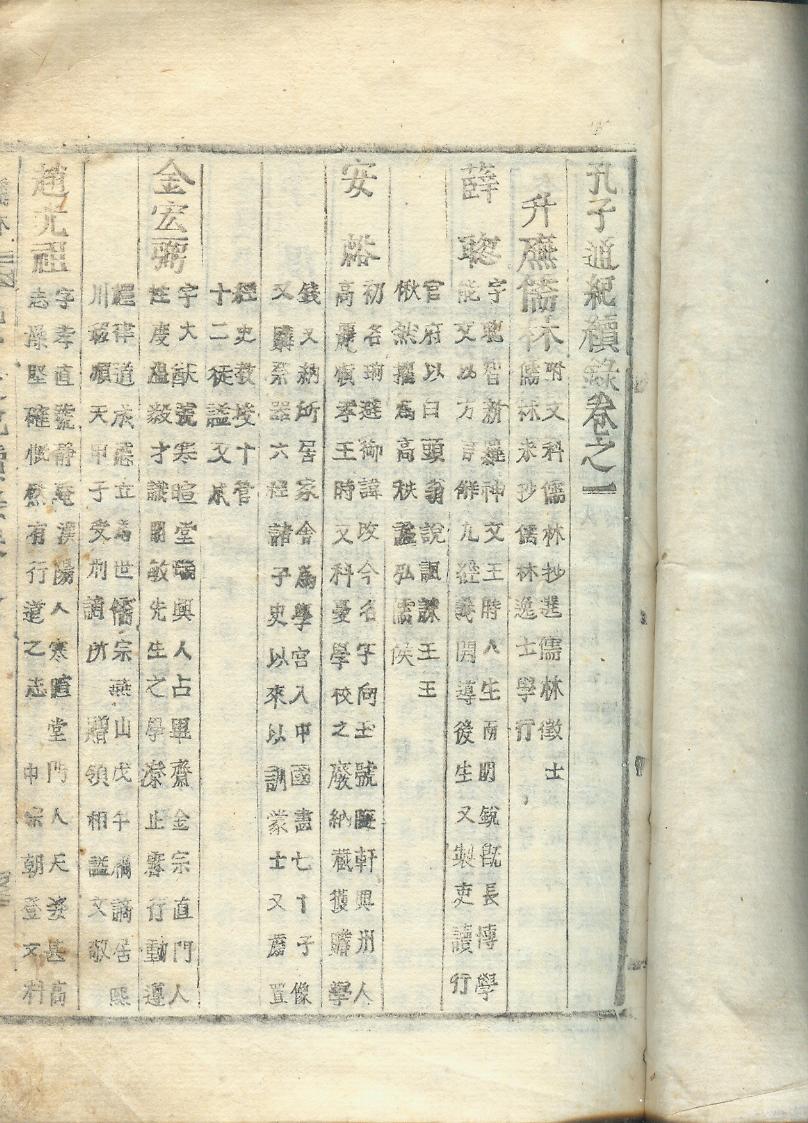 孔子通紀續錄卷之一
升廡儒林
附文科儒林抄選儒林徵士
儒林未抄儒林逸士學行
薛聰
字聰智新羅神文王時人生而明銳旣長博學
能文以方言解九經義開導後生又製吏讀行
官府以白頭翁說諷諫王王
愀然擢爲高秩謚弘儒侯
安裕
初名珦避御諱改今名字向士號晦軒興州人
高麗忠孝王時文科憂學校之廢納藏獲贍學
錢又納所居家舍爲學宮入中國畵七十子像
又購祭器六經諸子史以來以訓蒙士又薦置
經史敎授十官
十二徒謚文成
金宏弼
字大猷號寒暄堂瑞興人占畢齋金宗直門人
性度溫毅才識明敏先生之學深止齊行動遵
禮律道成悳立爲世儒宗燕山戊午禍謫居熙
川移順天甲子受刑謫所 贈領相謚文敬
趙光祖
字孝直號靜庵漢陽人寒暄堂門人天姿甚高
志操堅確慨然有行道之志 中宗朝登文科